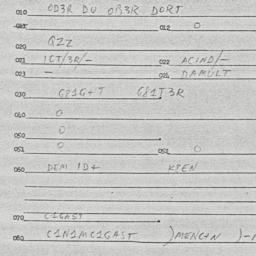 010 OD3R DU OB3R DORT
011 012 O
020 QZZ
021 1CT/3R/- 022 ACIND/-
023 - 024 DAMULT
030 G81G+T G81T3R
040 O
050 O
051 O 052 O
060 DIM ID+ KPEN
070 C1GAST
080 C1N1MC1GAST )MENC+N )-